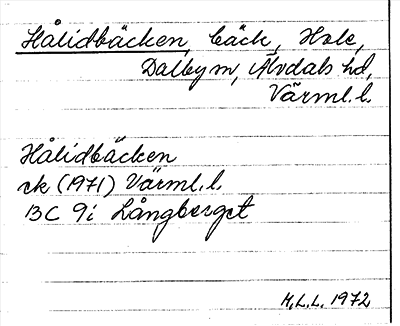 Hålidbäcken, bäck, Hole,
Dalby sn, Älvdals hd,
Värml. l.
Hålidbäcken
ek (1971) Värml. l.
13C 9i Långberget
M.L.L. 1972